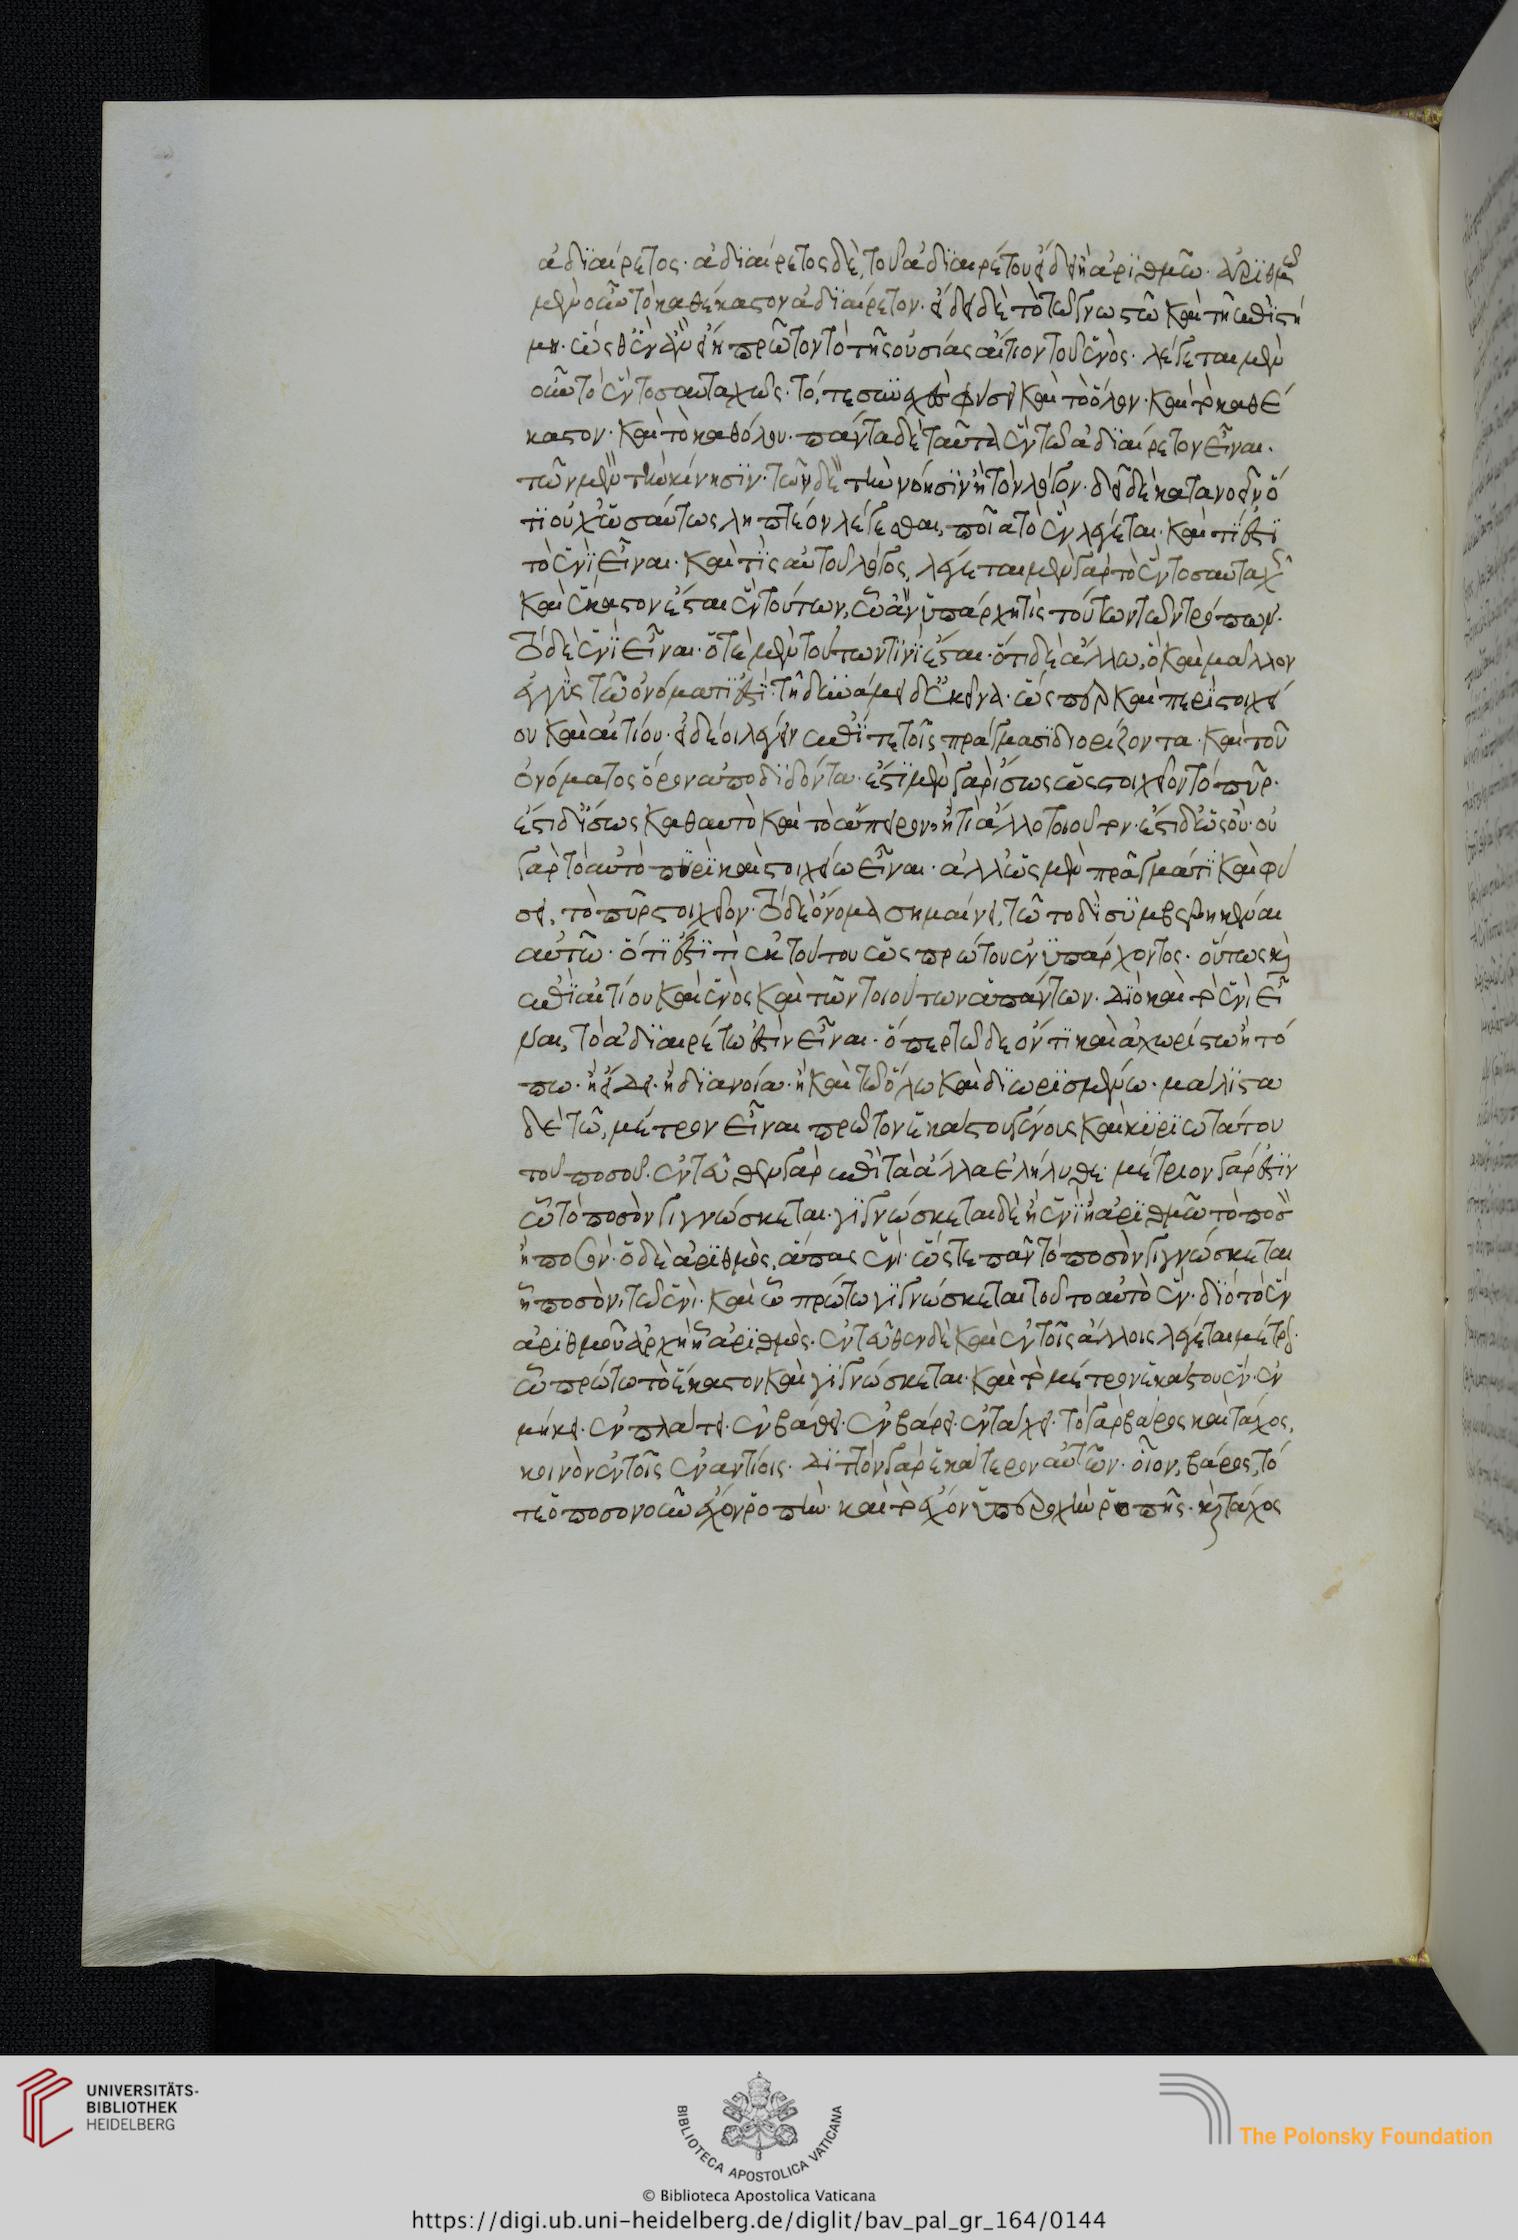 ἀδιαίρετος· ἀδιαίρετος δὲ, τοῦ ἀδιαιρέτου εἴδει ἢ ἀριθμῶ· ἀριθμῶ
μὲν οὖν τὸ καθέκαστον ἀδιαίρετον· εἴδει δὲ τὸ τῶ γνωστῶ καὶ τῇ ἐπιστή
μη· ὥσθ' ἓν ἂν εἴη πρῶτον τὸ τῆς οὐσίας αἴτιον τοῦ ἑνός· λέγεται μὲν
οὖν τὸ ἓν τοσαυταχῶς· τό, τε συνεχὲς φύσει καὶ τὸ ὅλον· καὶ τὸ καθέ
καστον· καὶ τὸ καθόλου· πάντα δὲ ταῦτα ἓν τῶ ἀδιαίρετον εἶναι·
τῶν μὲν τὴν κίνησιν· τῶν δὲ τὴν νόησιν ἢ τὸν λόγον· δεῖ δὲ κατανοεῖν ὅ
τι οὐχ ὡσαύτως ληπτέον λέγεσθαι, ποῖα τὸ ἓν λέγεται· καὶ τί ἐστι
τὸ ἑνὶ εἶναι· καὶ τίς αὐτοῦ λόγος, λέγεται μὲν γὰρ τὸ ἓν τοσαυταχῶς
καὶ ἕκαστον ἔσται ἓν τούτων, ὧ ἂν ὑπάρχη τὶς τούτων τῶν τρόπων·
τὸ δὲ ἑνὶ εἶναι· ὁτὲ μὲν τούτων τινὶ ἔσται· ὅτι δὲ ἄλλω, ὃ καὶ μᾶλλον
ἐγγὺς τῶ ὀνόματι ἐστί· τῇ δυνάμει δ' ἐκεῖνα· ὥσπερ καὶ περὶ στοιχεί
ου καὶ αἰτίου· εἰ δέοι λέγειν ἐπί τε τοῖς πράγμασι διορίζοντα· καὶ τοῦ
ὀνόματος ὅρον ἀποδιδόντα· ἔστι μὲν γὰρ ἴσως ὡς στοιχεῖον τὸ πῦρ·
ἔστι δ' ἴσως καθαυτὸ καὶ τὸ ἄπειρον, ἤ τι ἄλλο τοιοῦτον· ἔστι δ' ὡς οὔ· οὐ
γὰρ τὸ αὐτὸ πυρὶ καὶ στοιχείω εἶναι· ἀλλ' ὡς μὲν πρᾶγμά τι καὶ φύ
σει, τὸ πῦρ στοιχεῖον· τὸ δὲ ὄνομα σημαίνει, τῶ τοδὶ συμβεβηκέναι
αὐτῶ· ὅτι ἐστί τὶ ἐκ τούτου ὡς πρώτου ἐνυπάρχοντος· οὕτως καὶ
ἐπὶ αἰτίου καὶ ἑνὸς καὶ τῶν τοιούτων ἁπάντων· διὸ καὶ τὸ ἑνὶ εἶ
ναι, τὸ ἀδιαιρέτω ἐστὶν εἶναι· ὅπερ τῶδε ὄντι καὶ ἀχωρίστω ἢ τό
πω· ἢ εἴδει· ἢ διανοία· ἢ καὶ τῶ ὅλω καὶ διωρισμένω· μάλιστα
δὲ τῶ, μέτρον εἶναι πρῶτον ἑκάστου γένους καὶ κυριωτάτου
τοῦ ποσοῦ· ἐντεῦθεν γὰρ ἐπὶ τὰ ἄλλα ἐλήλυθε· μέτριον γάρ ἐστιν
ὧ τὸ ποσὸν γιγνώσκεται· γιγνώσκεται δὲ ἢ ἑνὶ ἢ ἀριθμῶ τὸ ποσὸν
ἢ ποσόν· ὁ δὲ ἀριθμὸς, ἅπας ἑνί· ὥστε πᾶν τὸ ποσὸν γιγνώσκεται
ἧ ποσὸν, τῶ ἑνὶ· καὶ ὧ πρώτω γιγνώσκεται τοῦτο αὐτὸ ἕν· διὸ τὸ ἓν
ἀριθμοῦ ἀρχὴ ἧ ἀριθμός· ἐντεῦθεν δὲ καὶ ἐν τοῖς ἄλλοις λέγεται μέτρον·
ὧ πρώτω τὸ ἕκαστον καὶ γιγνώσκεται· καὶ τὸ μέτρον ἑκάστου ἕν· ἐν
μήκει· ἐν πλάτει· ἐν βάθει· ἐν βάρει· ἐν τάχει· τὸ γὰρ βάρος καὶ τάχος,
κοινὸν ἐν τοῖς ἐναντίοις· διττὸν γὰρ ἑκάτερον αὐτῶν· οἷον, βάρος, τό
τε ὁποσονοῦν ἔχον ῥοπὴν· καὶ τὸ ἔχον ὑπεροχὴν ῥοπῆς· καὶ τάχος
UNIVERSITÄTS-
BIBLIOTHEK
HEIDELBERG
BIBLIOTECA APOSTOLICA VATICANA
The Polonsky Foundation
© Biblioteca Apostolica Vaticana
https://digi.ub.uni-heidelberg.de/diglit/bav_pal_gr_164/0144